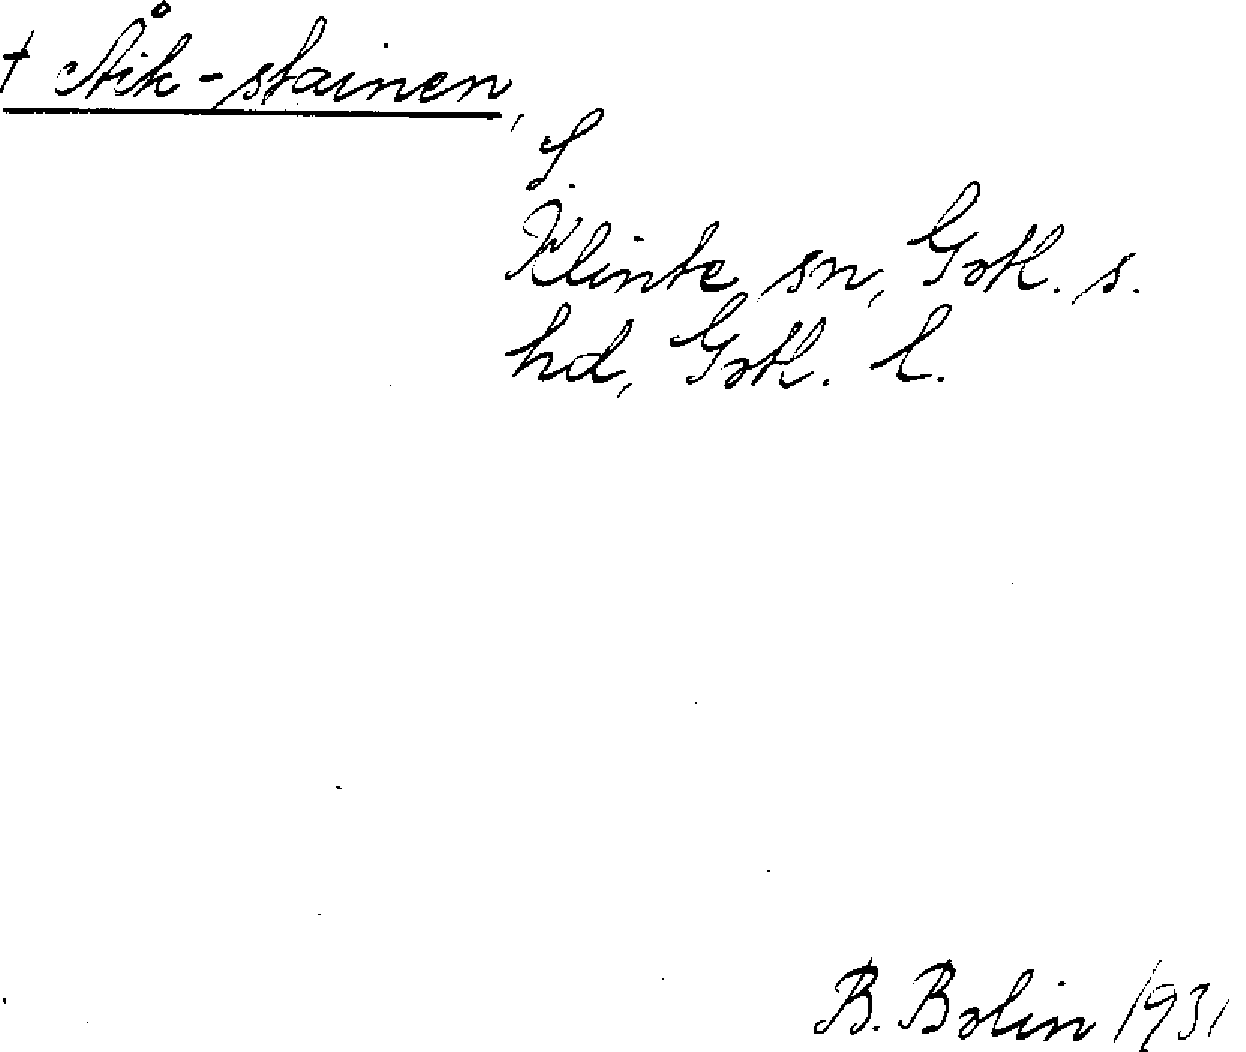 † Åik-stainen,
S.
Klinte sn, Gotl. s.
hd, Gotl. l.
B. Bolin 1931